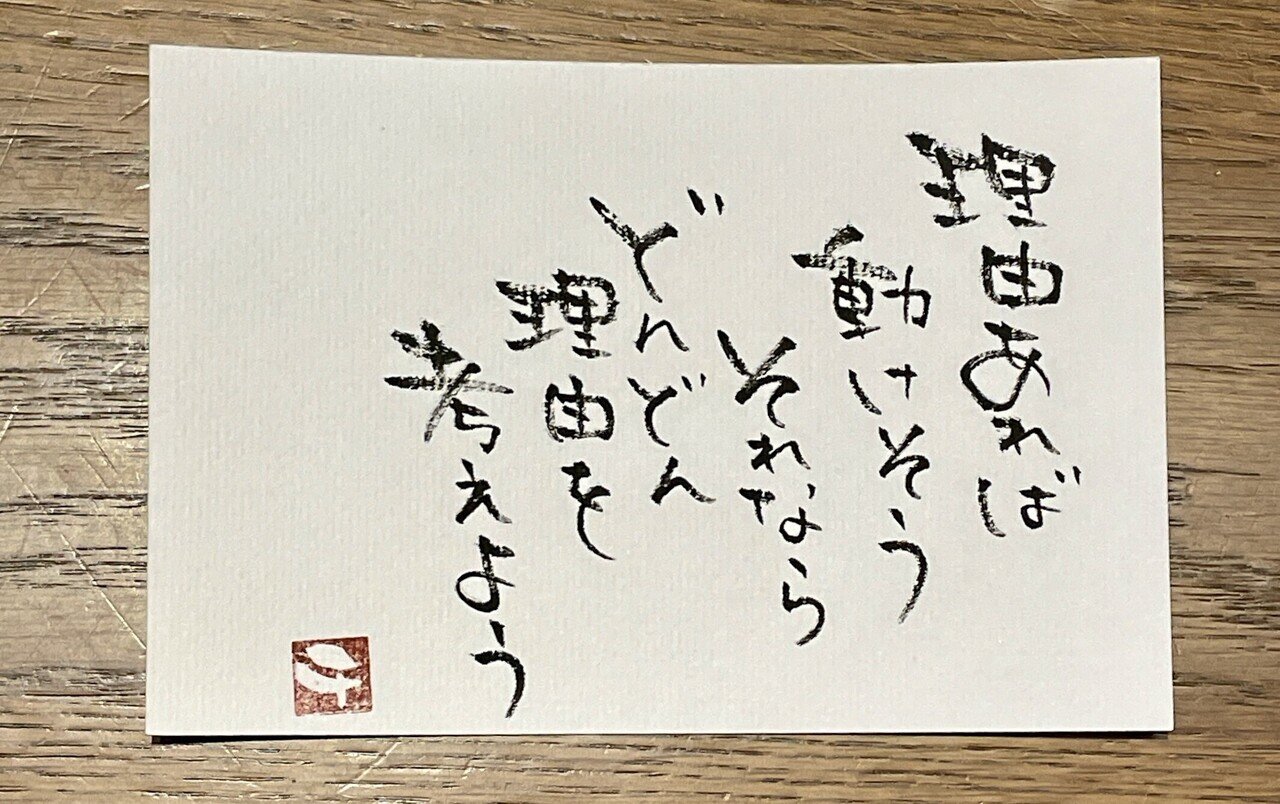 理由あれば
動けそう
それなら
どんどん
理由を
考えよう